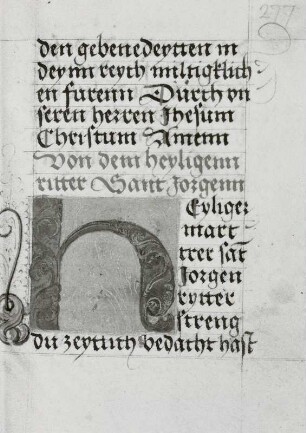 277
den gebenedeytten in
deynn reych miltigklich
en furenn Durch vn
seren herren Jhesum
Christum Amenn
Von dem heyligenn
ritter Sant Jorgenn
Heyliger
mart
trer sāt
Jorgen
rytter
streng
du zeytlich bedacht hast